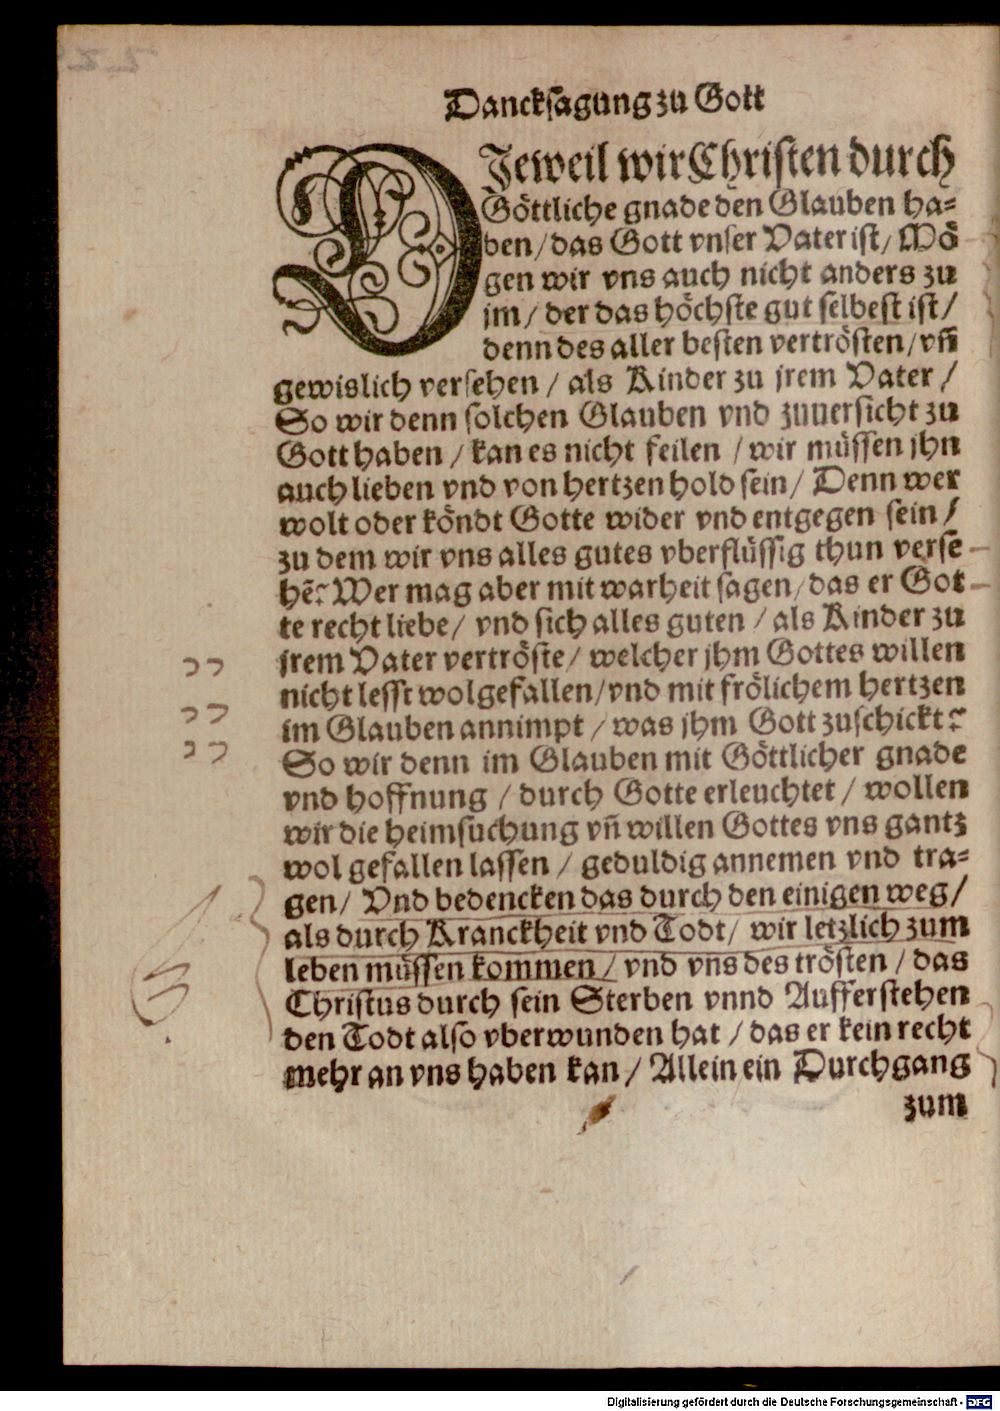 Dancksagung zu Gott
DJeweil wir Christen durch
Göttliche gnade den Glauben ha-
ben/ das Gott vnser Vater ist/ Mö
gen wir vns auch nicht anders zu
jm/ der das höchste gut selbest ist/
denn des aller besten vertrösten/ vñ
gewislich versehen / als Kinder zu jrem Vater /
So wir denn solchen Glauben vnd zuuersicht zu
Gott haben / kan es nicht feilen / wir müssen jhn
auch lieben vnd von hertzen hold sein/ Denn wer
wolt oder köndt Gotte wider vnd entgegen sein/
zu dem wir vns alles gutes vberflüssig thun verse
hẽ? Wer mag aber mit warheit sagen/ das er Got
te recht liebe/ vnd sich alles guten / als Kinder zu
jrem Vater vertröste/ welcher jhm Gottes willen
nicht lesst wolgefallen/ vnd mit frölichem hertzen
im Glauben annimpt / was jhm Gott zuschickt?
So wir denn im Glauben mit Göttlicher gnade
vnd hoffnung / durch Gotte erleuchtet / wollen
wir die heimsuchung vñ willen Gottes vns gantz
wol gefallen lassen / geduldig annemen vnd tra-
gen/ Vnd bedencken das durch den einigen weg/
als durch Kranckheit vnd Todt/ wir letzlich zum
leben müssen kommen/ vnd vns des trösten / das
Christus durch sein Sterben vnnd Aufferstehen
den Todt also vberwunden hat / das er kein recht
mehr an vns haben kan/ Allein ein Durchgang
zum
Digitalisierung gefördert durch die Deutsche Forschungsgemeinschaft - DFG